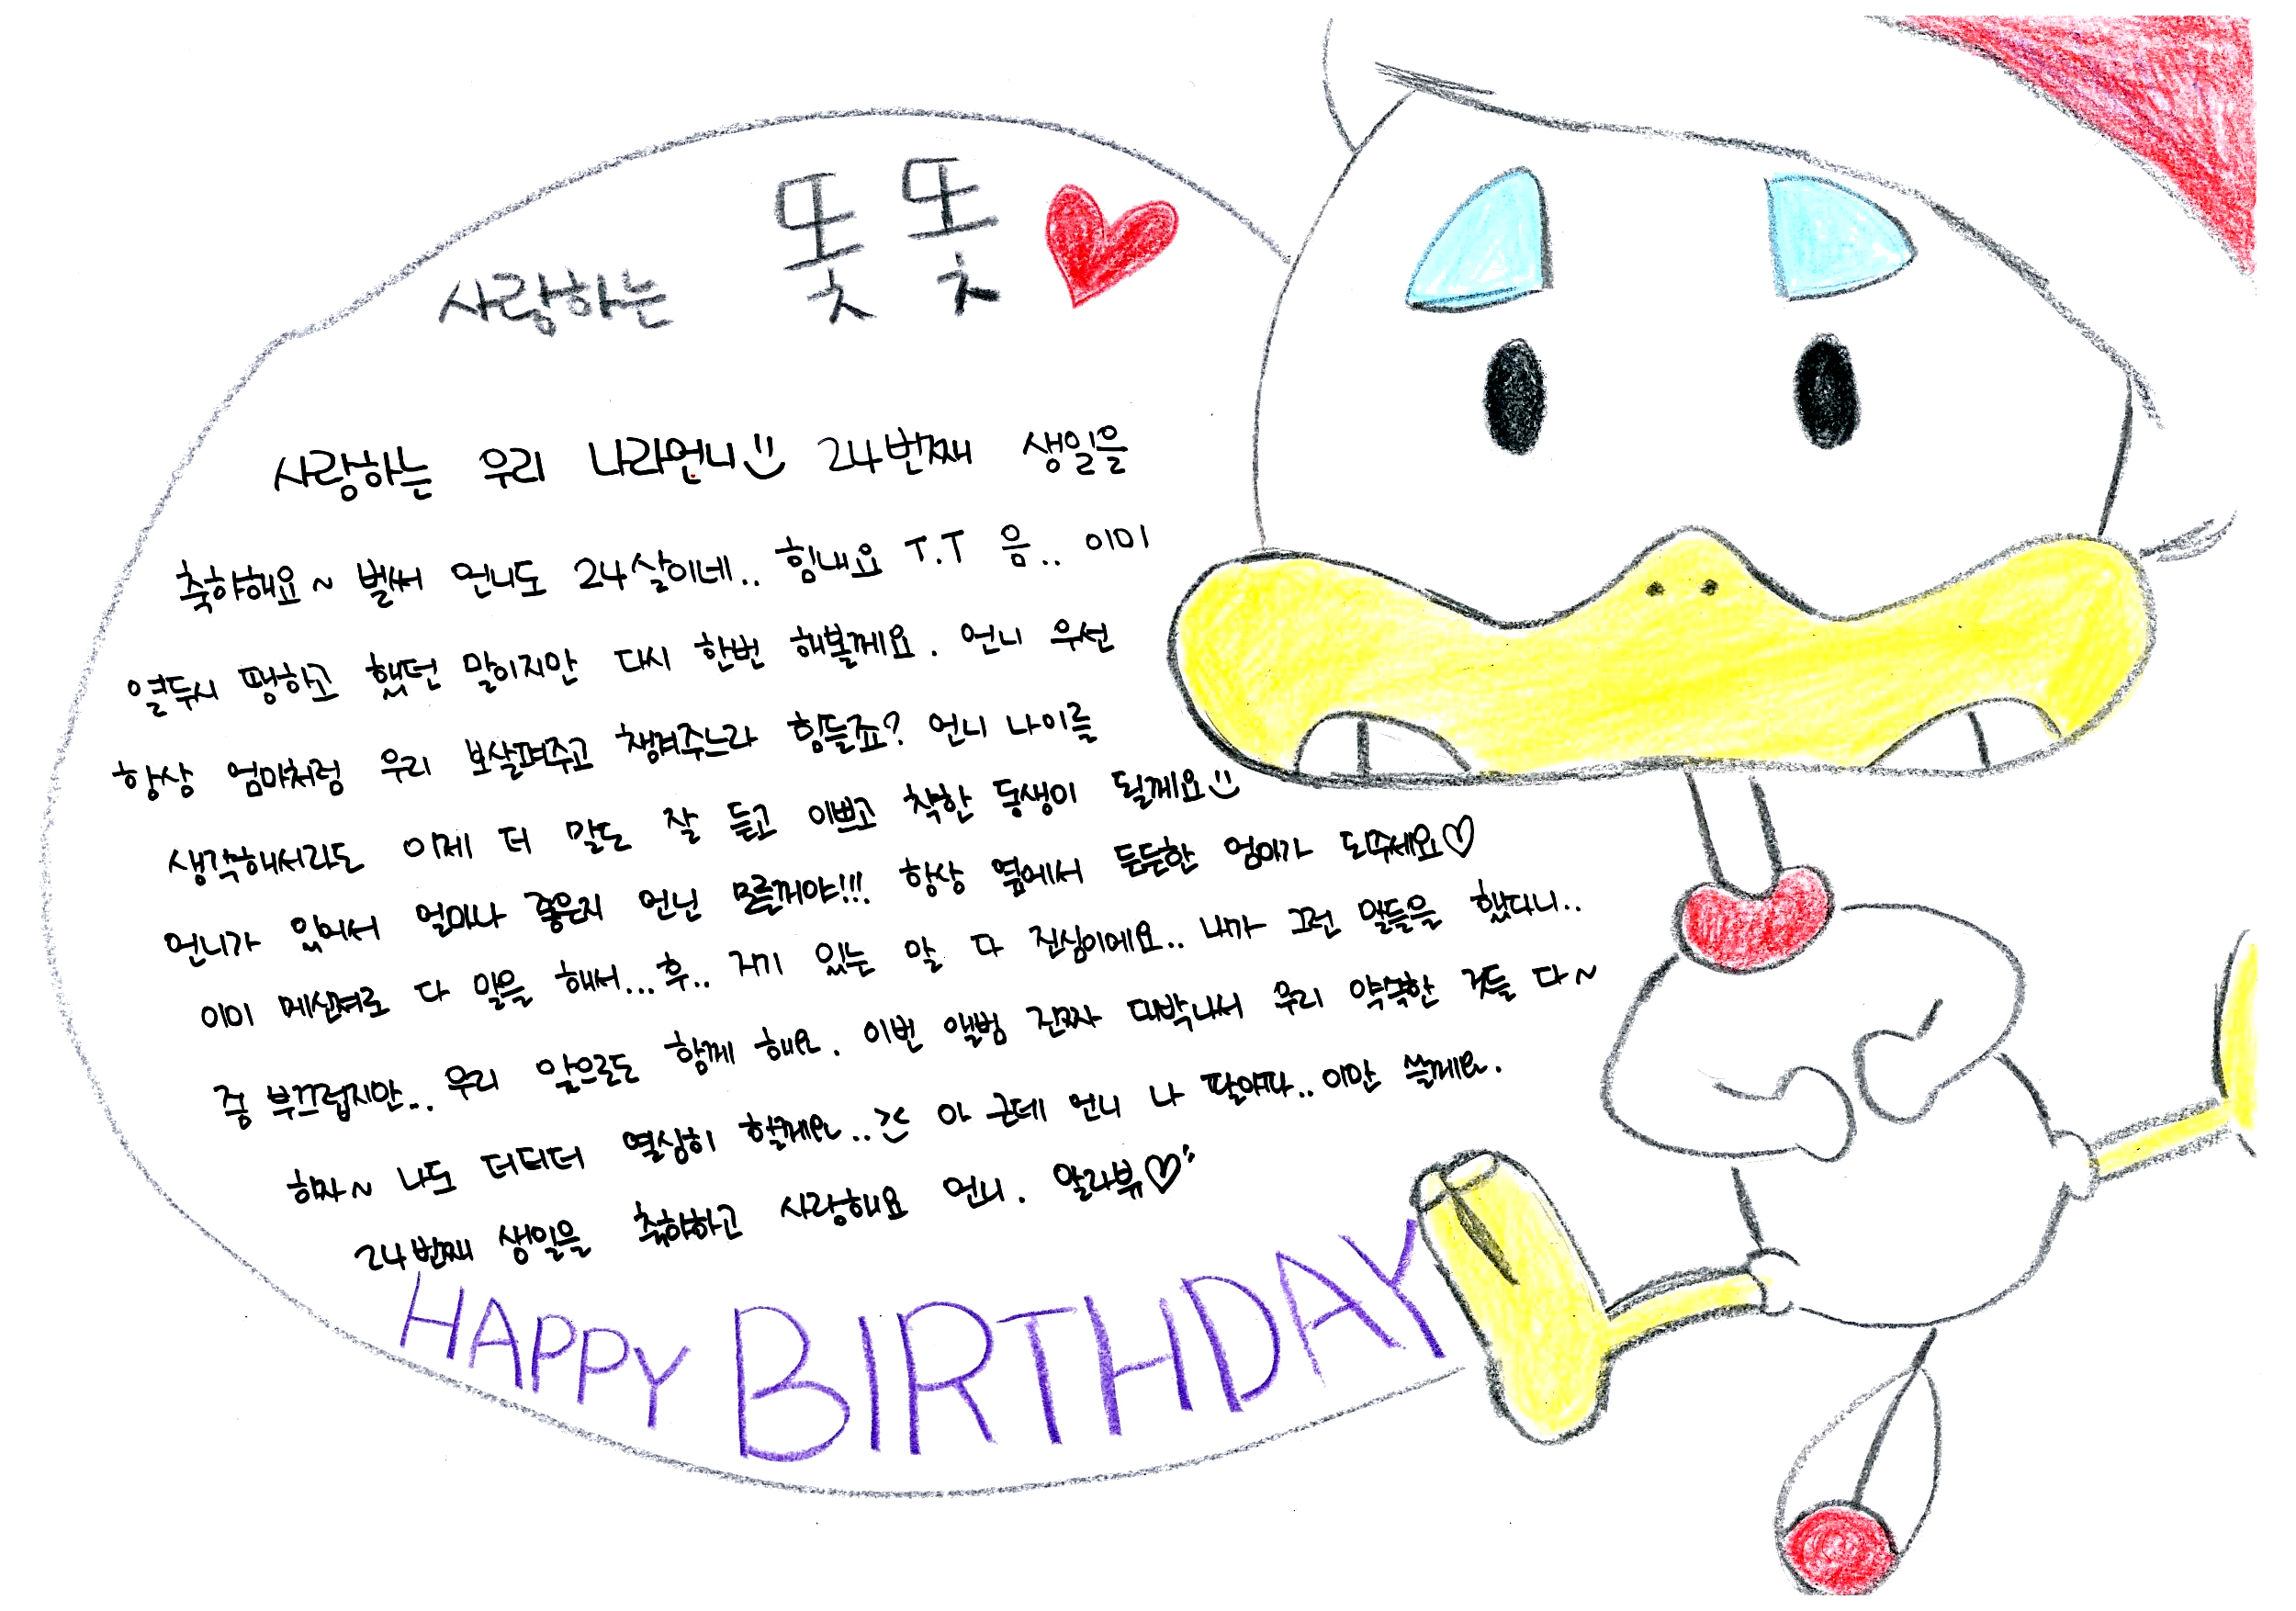 사랑하는 똧똧
사랑하는 우리 나라언니 24번째 생일을
축하해요~ 벌써 언니도 24살이네.. 힘내요 T.T 음.. 이미
열두시 땡하고 했던 말이지만 다시 한번 해볼께요. 언니 우선
항상 엄마처럼 우리 보살펴주고 챙겨주느라 힘들죠? 언니 나이를
생각해서라도 이제 더 말도 잘 듣고 이쁘고 착한 동생이 될께요
언니가 있어서 얼마나 좋은지 언닌 모를꺼야!!! 항상 옆에서 든든한 엄마가 되주세요♡
이미 메신져로 다 말을 해서...후.. 저기 있는 말 다 진심이에요.. 내가 그런 말들을 했다니..
좀 부끄럽지만... 우리 앞으로도 함께 해요. 이번 앨범 진짜 대박나서 우리 약속한 것들 다~
하자~ 나도 더더더 열심히 할께요.. 아 근데 언니 나 팔아파.. 이만 쓸께요.
24번째 생일을 축하하고 사랑해요 언니. 알라뷰♡
HAPPY BIRTHDAY